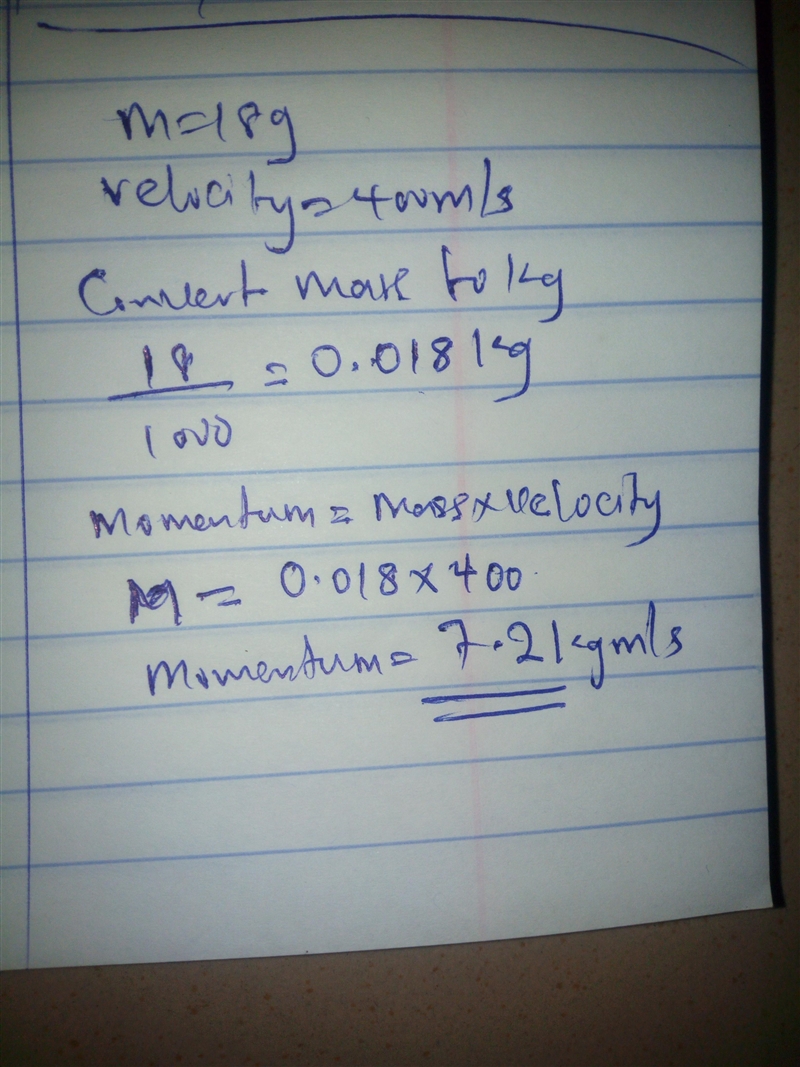 m=18g
velocity=400m/s
Convert mass to kg
18/1000 = 0.018kg
Momentum = mass×velocity
M = 0.018×400
Momentum= 7.2kgm/s